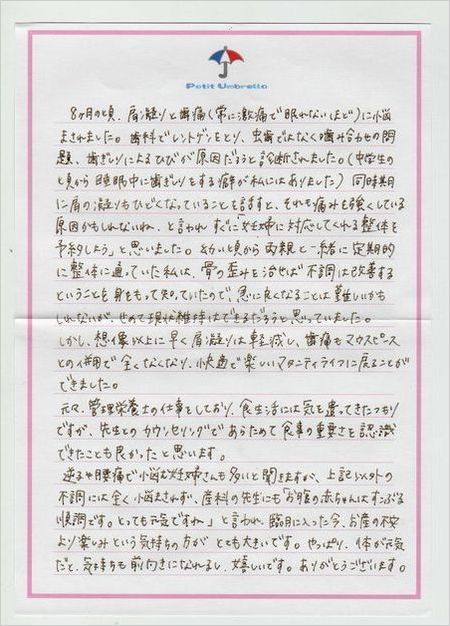 Petit Umbrella
8ヶ月の頃、肩凝りと歯痛(常に激痛で眠れないほど)に小悩
まされました。歯科でレントゲンをとり、虫歯ではなく噛み合わせの問
題、歯ぎしりによるひびが原因だろうと診断されました。(中学生の
ころから睡眠中に歯ぎしりをする癖が私にはありました)同時期
に肩の凝りもひどくなっていることを話すと、それも痛みを強くしている
原因かもしれないね、と言われ すぐに「妊婦に対応してくれる整体を
予約しよう」と思いました。幼い頃から両親と一緒に定期的
に整体に通っていた私は、骨の歪みを治せば不調は改善する
ということを身をもって知っていたので、急に良くなることは難しいかも
しれないが、せめて現状維持はできるだろうと思っていました。
しかし、想像以上に早く肩凝りは軽減し、歯痛もマウスピース
との併用で全くなくなり、快適で楽しいマタニティライフに戻ることが
できました。
元々、管理栄養士の仕事をしており、食生活には気を遣ってきたつもり
ですが、先生とのカウンセリングであらためて食事の重要さを認識
できたことも良かったと思います。
逆子や腰痛で小悩む妊婦さんも多いと聞きますが、上記以外の
不調には全く小悩まされず、産科の先生にも「お腹の赤ちゃんはすこぶる
順調です。とっても元気ですね」と言われ、臨月に入った今、お産の不安
より楽しみという気持ちの方が とても大きいです。やっぱり、体が元気
だと、気持ちも前向きになれるし、嬉しいです。ありがとうございます。